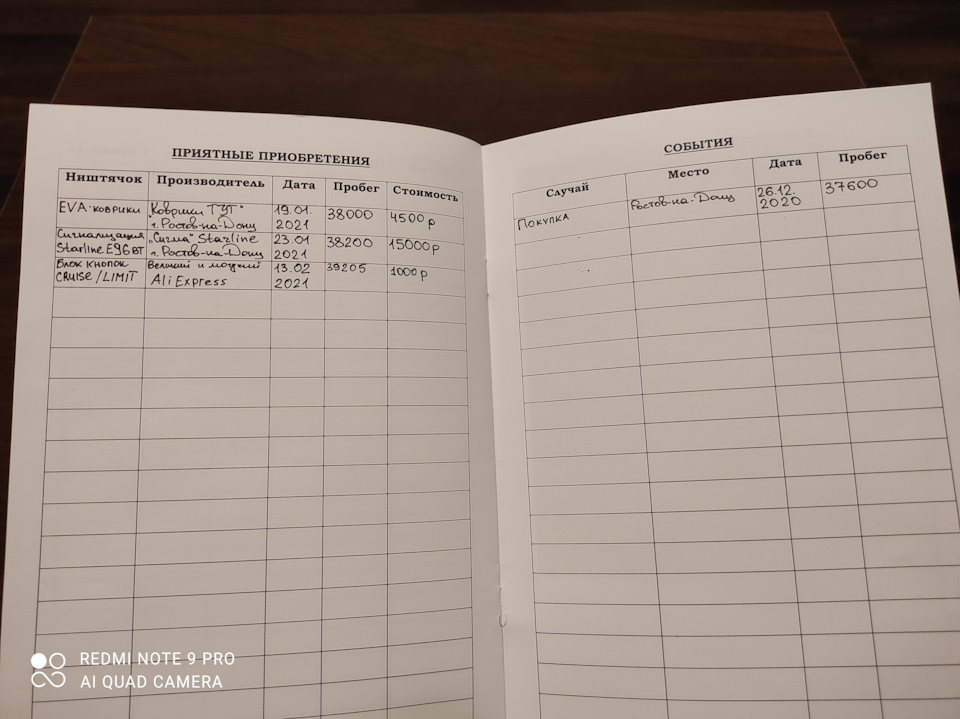 ПРИЯТНЫЕ ПРИОБРЕТЕНИЯ
Ништячок Производитель Дата Пробег Стоимость
EVA-коврики "Коврики ТУТ" 19.01. 38000 4500 р
г. Ростов-на-Дону 2021
Сигнализация "Сигма" Starline 23.01 38200 15000 р
Starline E96BT г. Ростов-на-Дону 2021
Блок кнопок Великий и могучий 13.02 39205 1000 р
CRUISE/LIMIT Ali Express 2021
СОБЫТИЯ
Случай Место Дата Пробег
Покупка Ростов-на-Дону 26.12. 37600
2020
REDMI NOTE 9 PRO
AI QUAD CAMERA